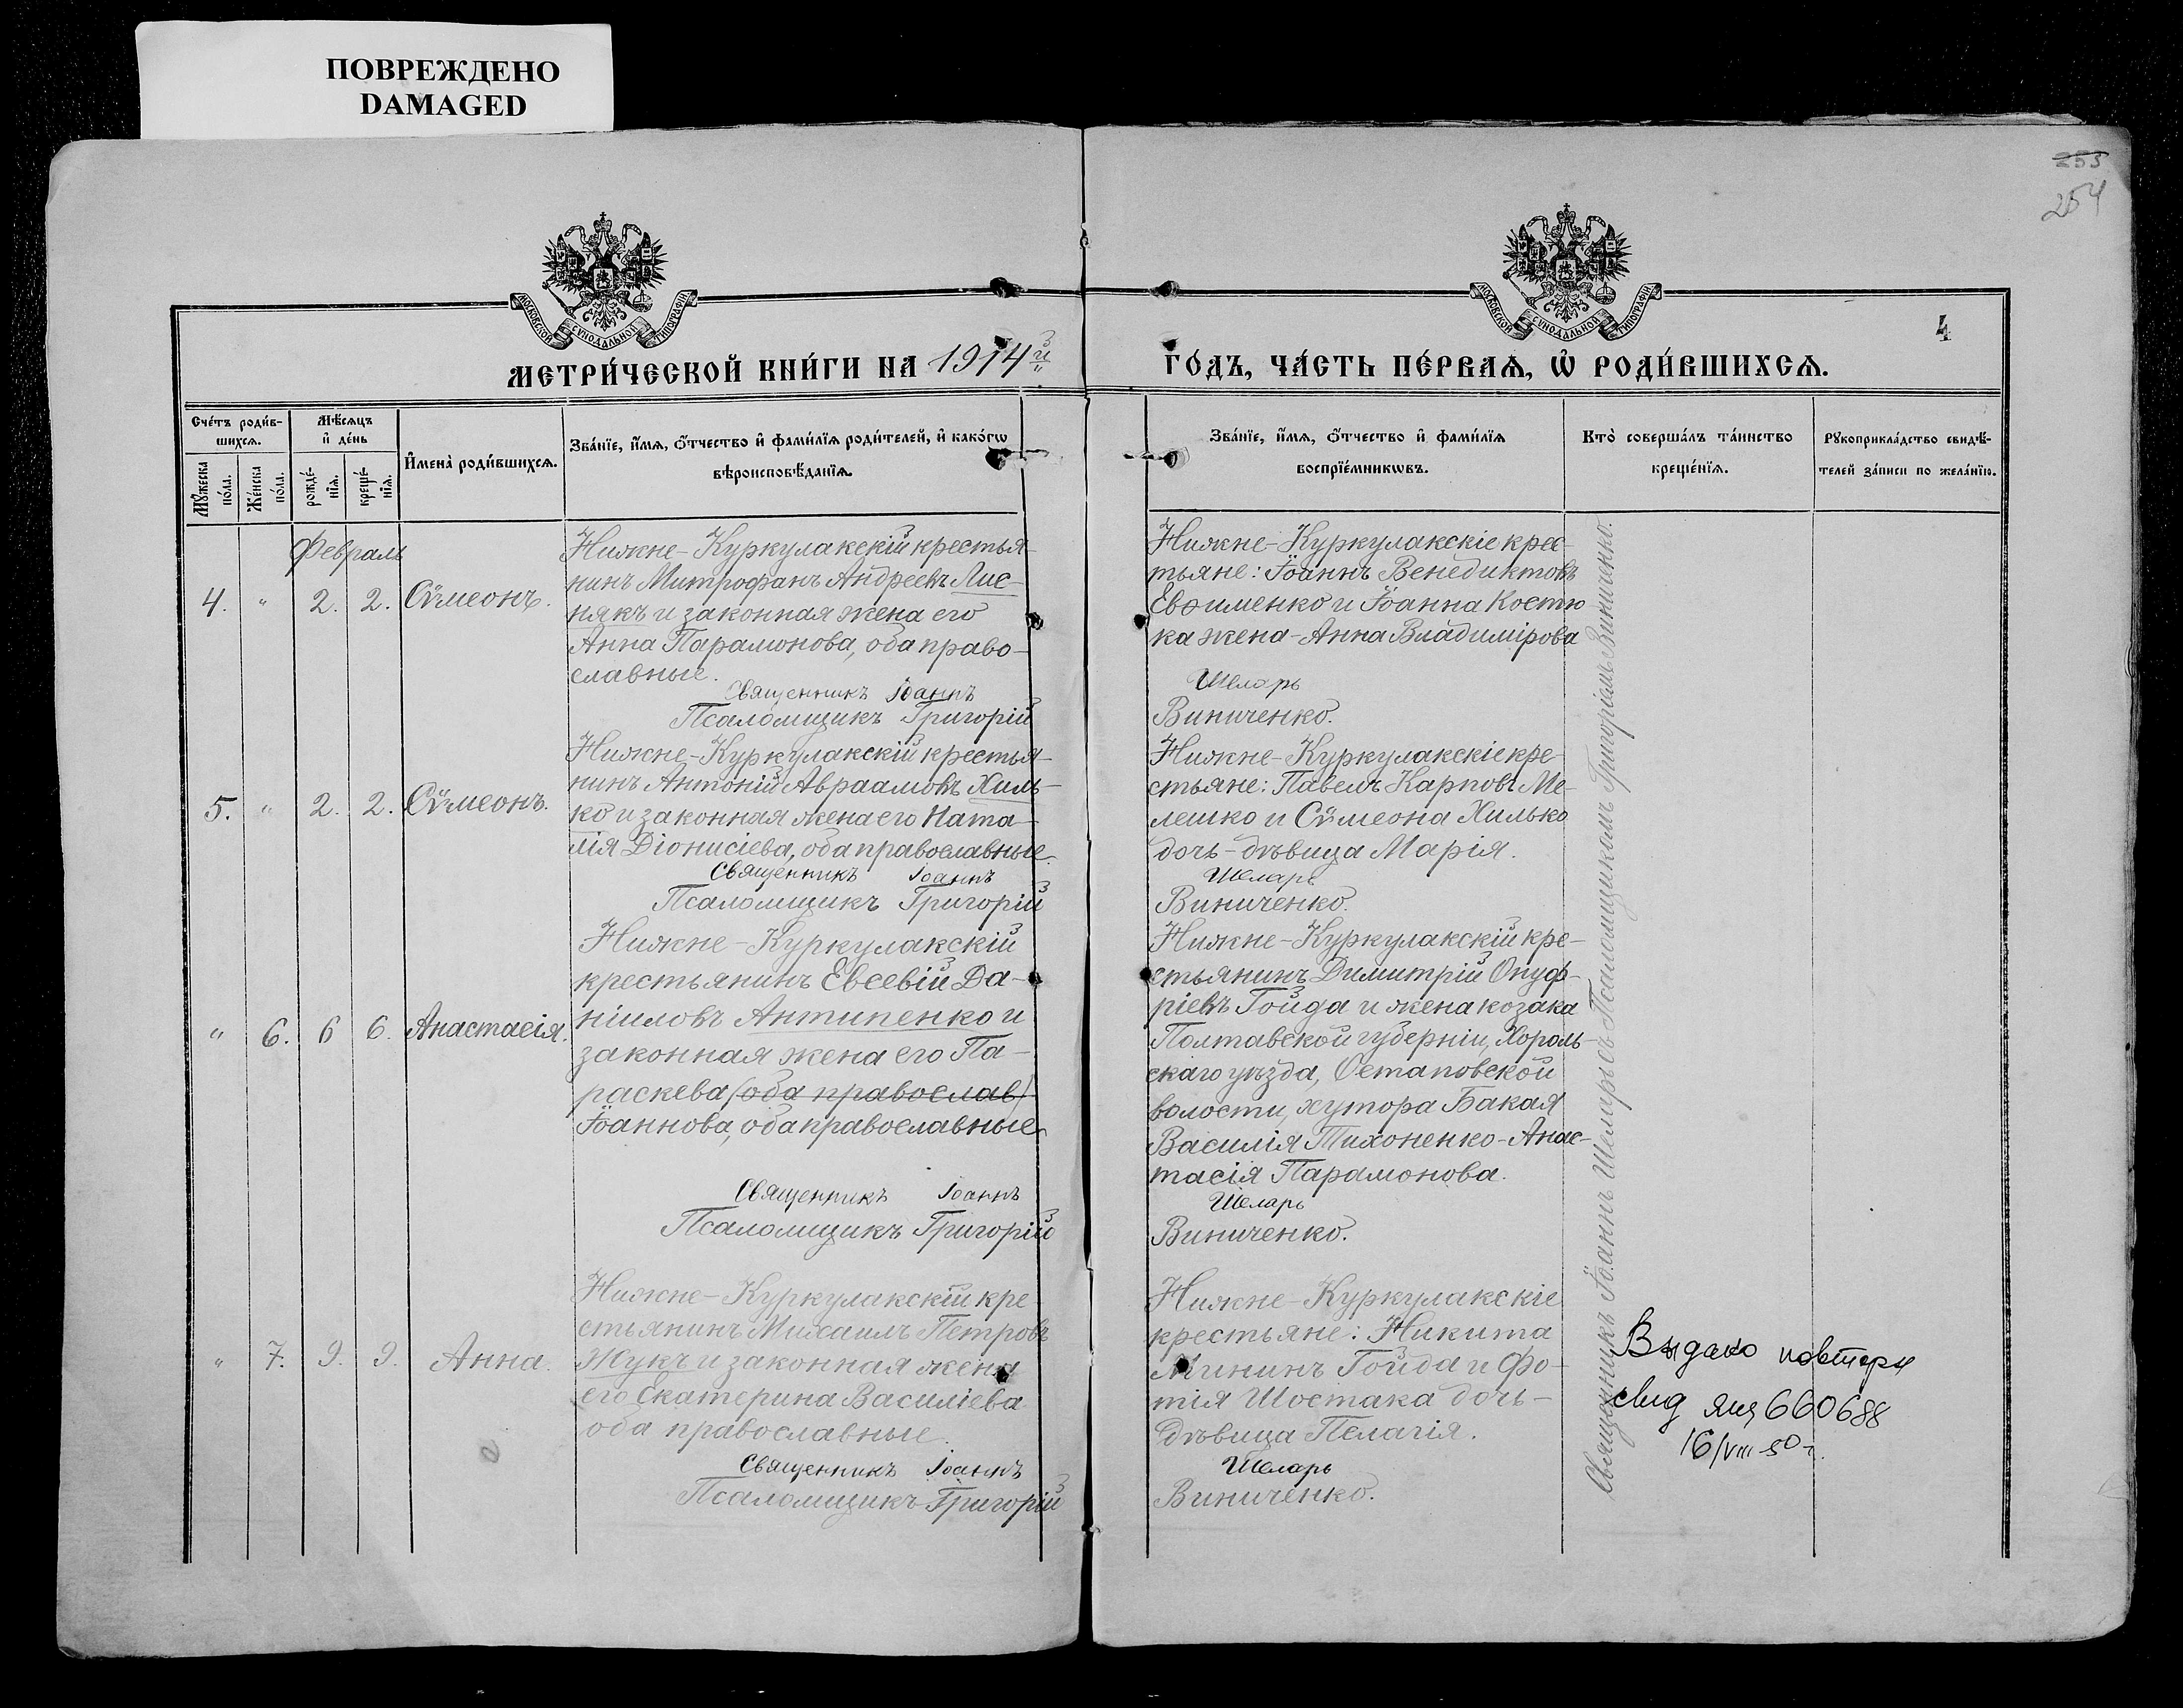 ПОВРЕЖДЕНО
DAMAGED
253
254
МОСКОВСКОЙ СѴНОДАЛЬНОЙ ТИПОГРАФІИ
МОСКОВСКОЙ СѴНОДАЛЬНОЙ ТИПОГРАФІИ
4
МЕТРИ́ЧЕСКОЙ КНИ́ГИ НА 1914й
ГО́ДЪ, ЧА́СТЬ ПЕ́РВАѦ, Ѡ҆ РОДИ́ВШИХСѦ.
Сче́тъ роди́в-
шихсѧ.
Мꙋ́жеска по́ла.
Же́нска по́ла.
Мѣ́сѧцъ
и҆ де́нь
рожде́-
нїѧ.
креще́-
нїѧ.
И҆мена̀ роди́вшихсѧ.
Зва́нїе, и҆́мѧ, ѻ҆́тчество и҆ фами́лїѧ роди́телей, и҆ како́гѡ
вѣроисповѣ́данїѧ.
Зва́нїе, и҆́мѧ, ѻ҆́тчество и҆ фами́лїѧ
воспрїе́мникѡвъ.
Кто̀ соверша́лъ та́инство
креще́нїѧ.
Рꙋкоприкла́дство свидѣ́-
телей за́писи по жела́нїю.
Февраль
4. " 2. 2. Сѵмеонъ.
Нижне-Куркулакскій крестья-
нинъ Митрофанъ Андреевъ Лис-
някъ и законная жена его
Анна Парамонова, оба право-
славные.
Священникъ Іоаннъ
Псаломщикъ Григорій
Нижне-Куркулакскіе крес-
тьяне: Іоаннъ Венедиктовъ
Евѳименко и Іоанна Костю
ка жена-Анна Владимірова
Шеларь
Виниченко.
5. " 2. 2. Сѵмеонъ.
Нижне-Куркулакскій крестья-
нинъ Антоній Авраамовъ Хиль-
ко и законная жена его Ната-
лія Діонисіева, оба православные.
Священникъ Іоаннъ
Псаломщикъ Григорій
Нижне-Куркулакскіе кре-
стьяне: Павелъ Карповъ Ме-
лешко и Сѵмеона Хилько
дочь-дѣвица Марія.
Шеларь
Виниченко.
" 6. 6 6. Анастасія.
Нижне-Куркулакскій
крестьянинъ Евсевій Да-
ніиловъ Антипенко и
законная жена его Па-
раскева (оба православ)
Іоаннова, оба православные
Священникъ Іоаннъ
Псаломщикъ Григорій
Нижне-Куркулакскій кре-
стьянинъ Димитрій Онуф-
ріевъ Гойда и жена козака
Полтавской губерніи, Хороль-
скаго уѣзда, Остаповской
волости, хутора Бакая
Василія Тихоненко-Анас-
тасія Парамонова.
Шеларь
Виниченко.
" 7. 9. 9. Анна.
Нижне-Куркулакскій кре
стьянинъ Михаилъ Петровъ
Жукъ и законная жена
его Екатерина Василіева
оба православные.
Священникъ Іоаннъ
Псаломщикъ Григорій
Нижне-Куркулакскіе
крестьяне: Никита
Мининъ Гойда и Фо-
тія Шостака дочь-
дѣвица Пелагія.
Шеларь
Виниченко.
Священникъ Іоаннъ Шеларь съ Псаломщикомъ Григоріемъ Виниченко.
Выдано повторн
свид 660688
16/VIII-50 г.